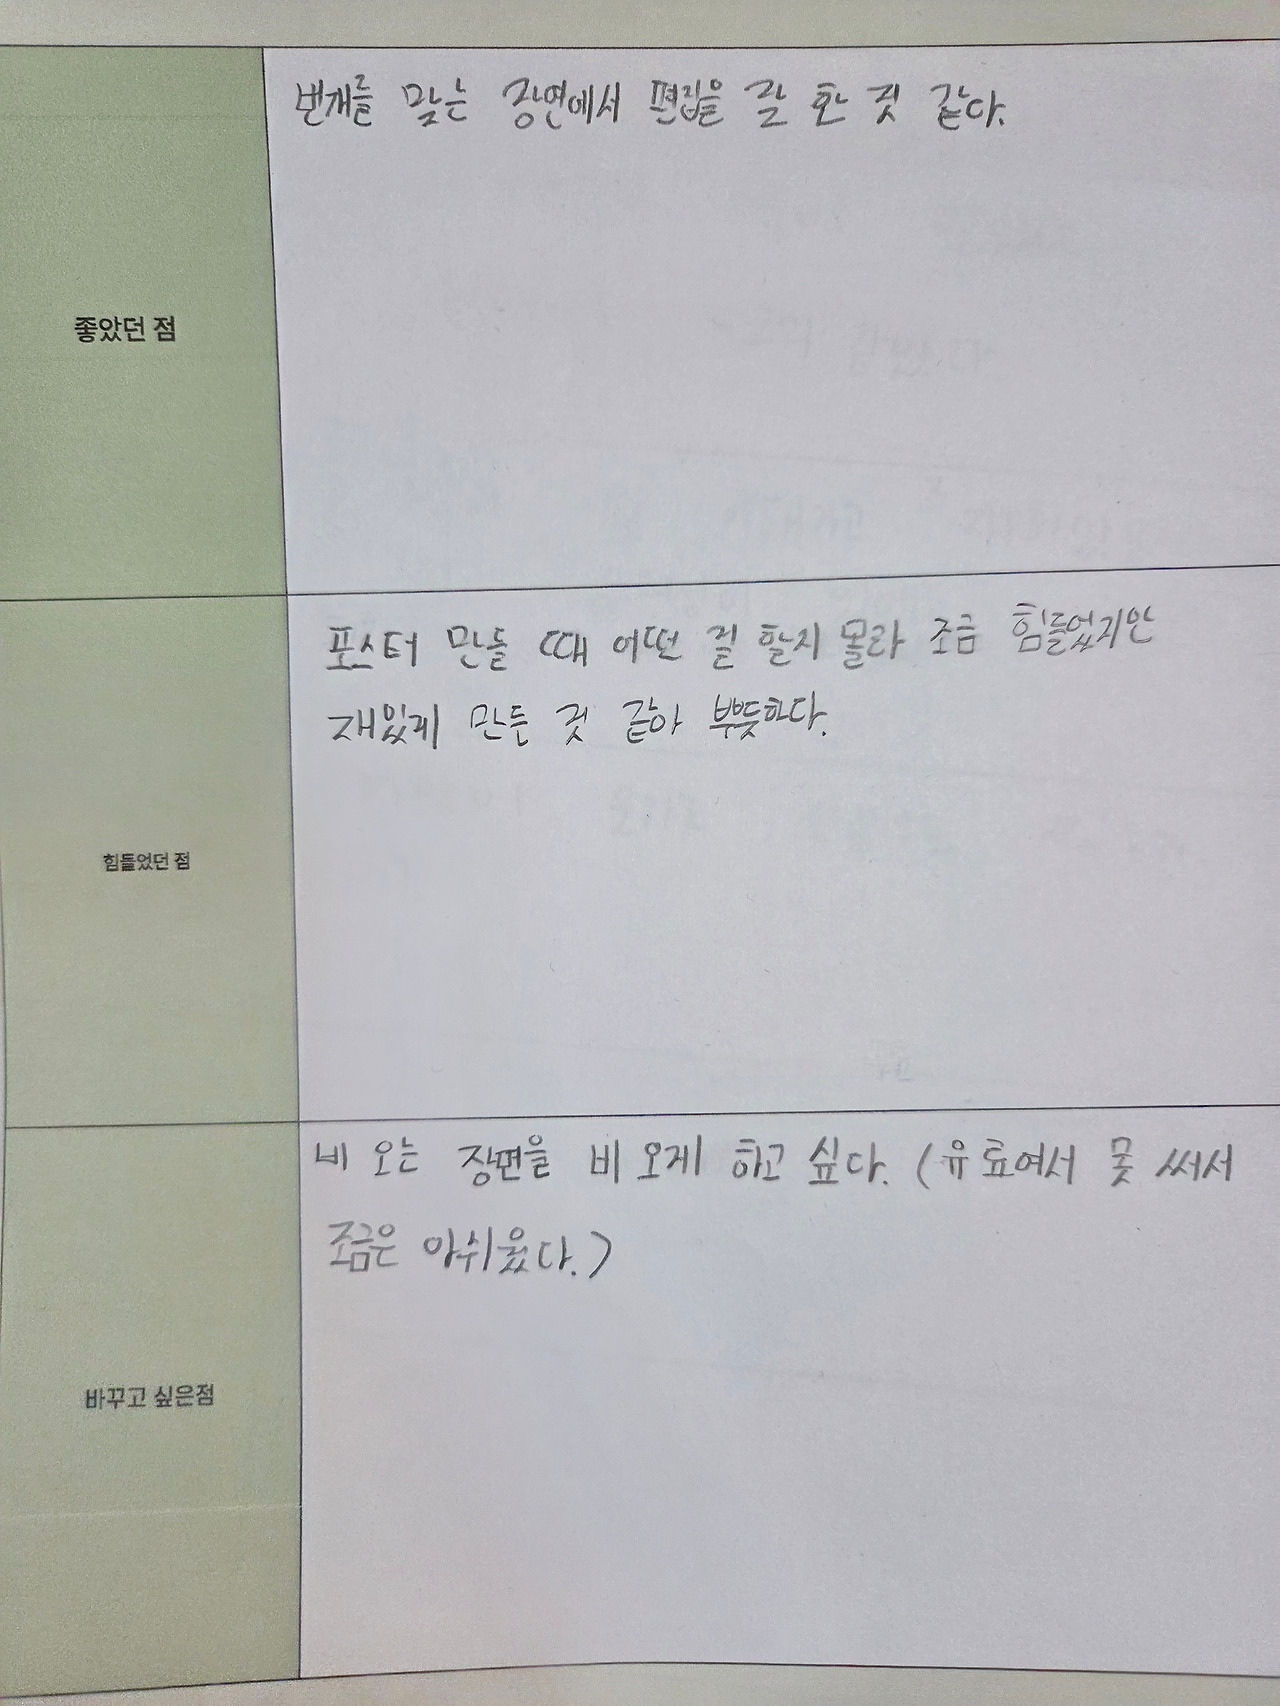 좋았던 점
번개를 맞는 장면에서 편집을 잘 한 것 같다.
힘들었던 점
포스터 만들 때 어떤 걸 할지 몰라 조금 힘들었지만
재밌게 만든 것 같아 뿌듯하다.
바꾸고 싶은점
비 오는 장면을 비 오게 하고 싶다. (유료여서 못 써서
조금은 아쉬웠다.)